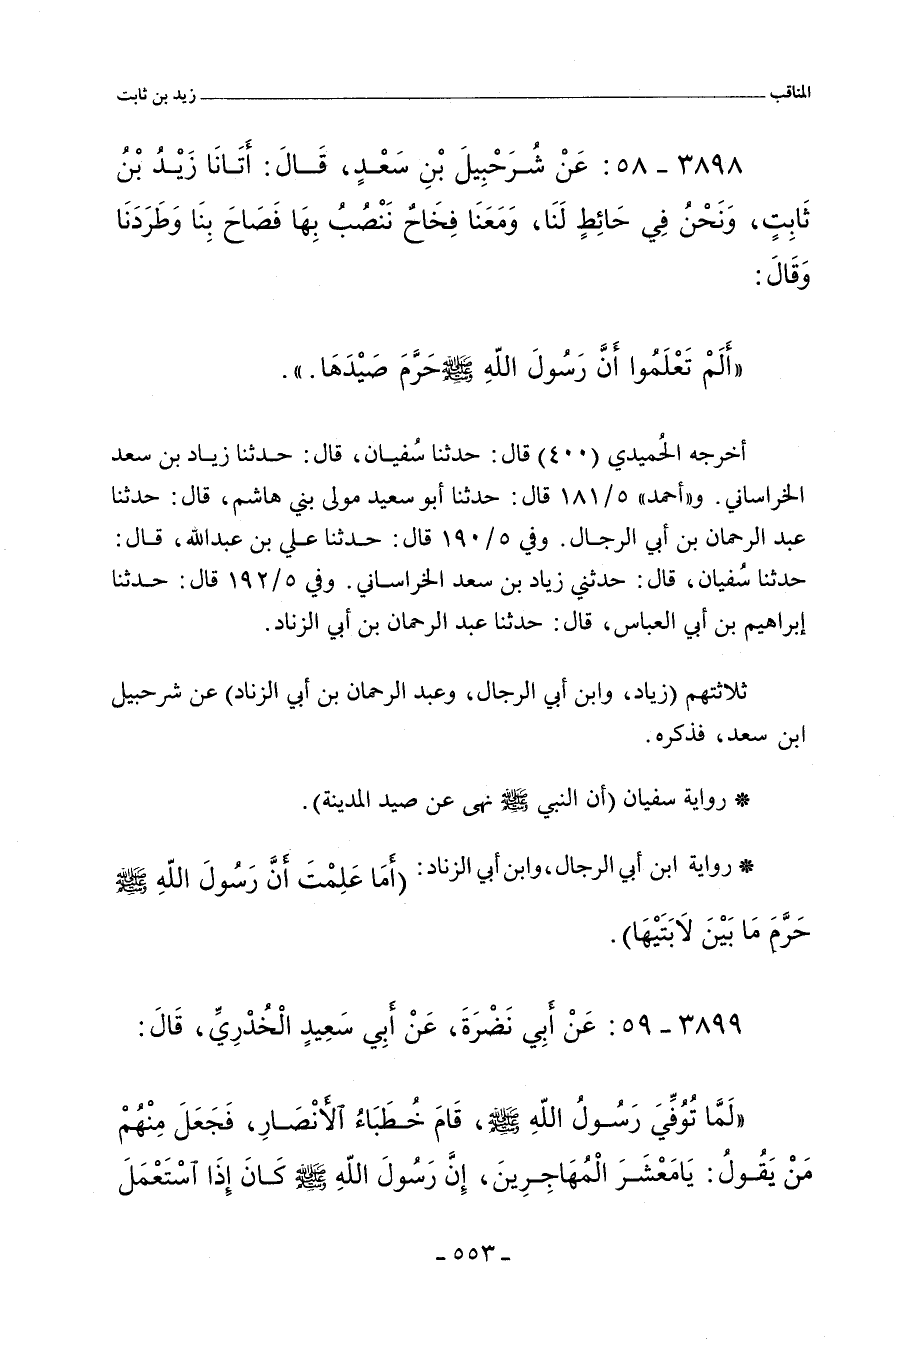 المناقب ـــــــــــــــــــــــــــــــــــــــــ زيد بن ثابت
٣٨٩٨ ـ ٥٨: عَنْ شُرَحْبِيلَ بْنِ سَعْدٍ، قَالَ: أَتَانَا زَيْدُ بْنُ
ثَابِتٍ، وَنَحْنُ فِي حَائِطٍ لَنَا، وَمَعَنَا فِخَاخٌ نَنْصُبُ بِهَا فَصَاحَ بِنَا وَطَرَدَنَا
وَقَالَ:
«أَلَمْ تَعْلَمُوا أَنَّ رَسُولَ اللّهِ ﷺ حَرَّمَ صَيْدَهَا.».
أخرجه الحُميدي (٤٠٠) قال: حدثنا سُفيان، قال: حدثنا زياد بن سعد
الخراساني. و«أحمد» ٥/١٨١ قال: حدثنا أبو سعيد مولى بني هاشم، قال: حدثنا
عبد الرحمان بن أبي الرجال. وفي ٥/١٩٠ قال: حدثنا علي بن عبدالله، قال:
حدثنا سُفيان، قال: حدثني زياد بن سعد الخراساني. وفي ٥/١٩٢ قال: حدثنا
إبراهيم بن أبي العباس، قال: حدثنا عبد الرحمان بن أبي الزناد.
ثلاثتهم (زياد، وابن أبي الرجال، وعبد الرحمان بن أبي الزناد) عن شرحبيل
ابن سعد، فذكره.
* رواية سفيان (أن النبي ﷺ نهى عن صيد المدينة).
* رواية ابن أبي الرجال، وابن أبي الزناد: (أَمَا عَلِمْتَ أَنَّ رَسُولَ اللّهِ ﷺ
حَرَّمَ مَا بَيْنَ لَابَتَيْهَا).
٣٨٩٩ ـ ٥٩: عَنْ أَبِي نَضْرَةَ، عَنْ أَبِي سَعِيدٍ الْخُدْرِيِّ، قَالَ:
«لَمَّا تُوُفِّيَ رَسُولُ اللّهِ ﷺ، قَامَ خُطَبَاءُ ٱلأَنْصَارِ، فَجَعَلَ مِنْهُمْ
مَنْ يَقُولُ: يَامَعْشَرَ الْمُهَاجِرِينَ، إِنَّ رَسُولَ اللّهِ ﷺ كَانَ إِذَا ٱسْتَعْمَلَ
ـ ٥٥٣ ـ